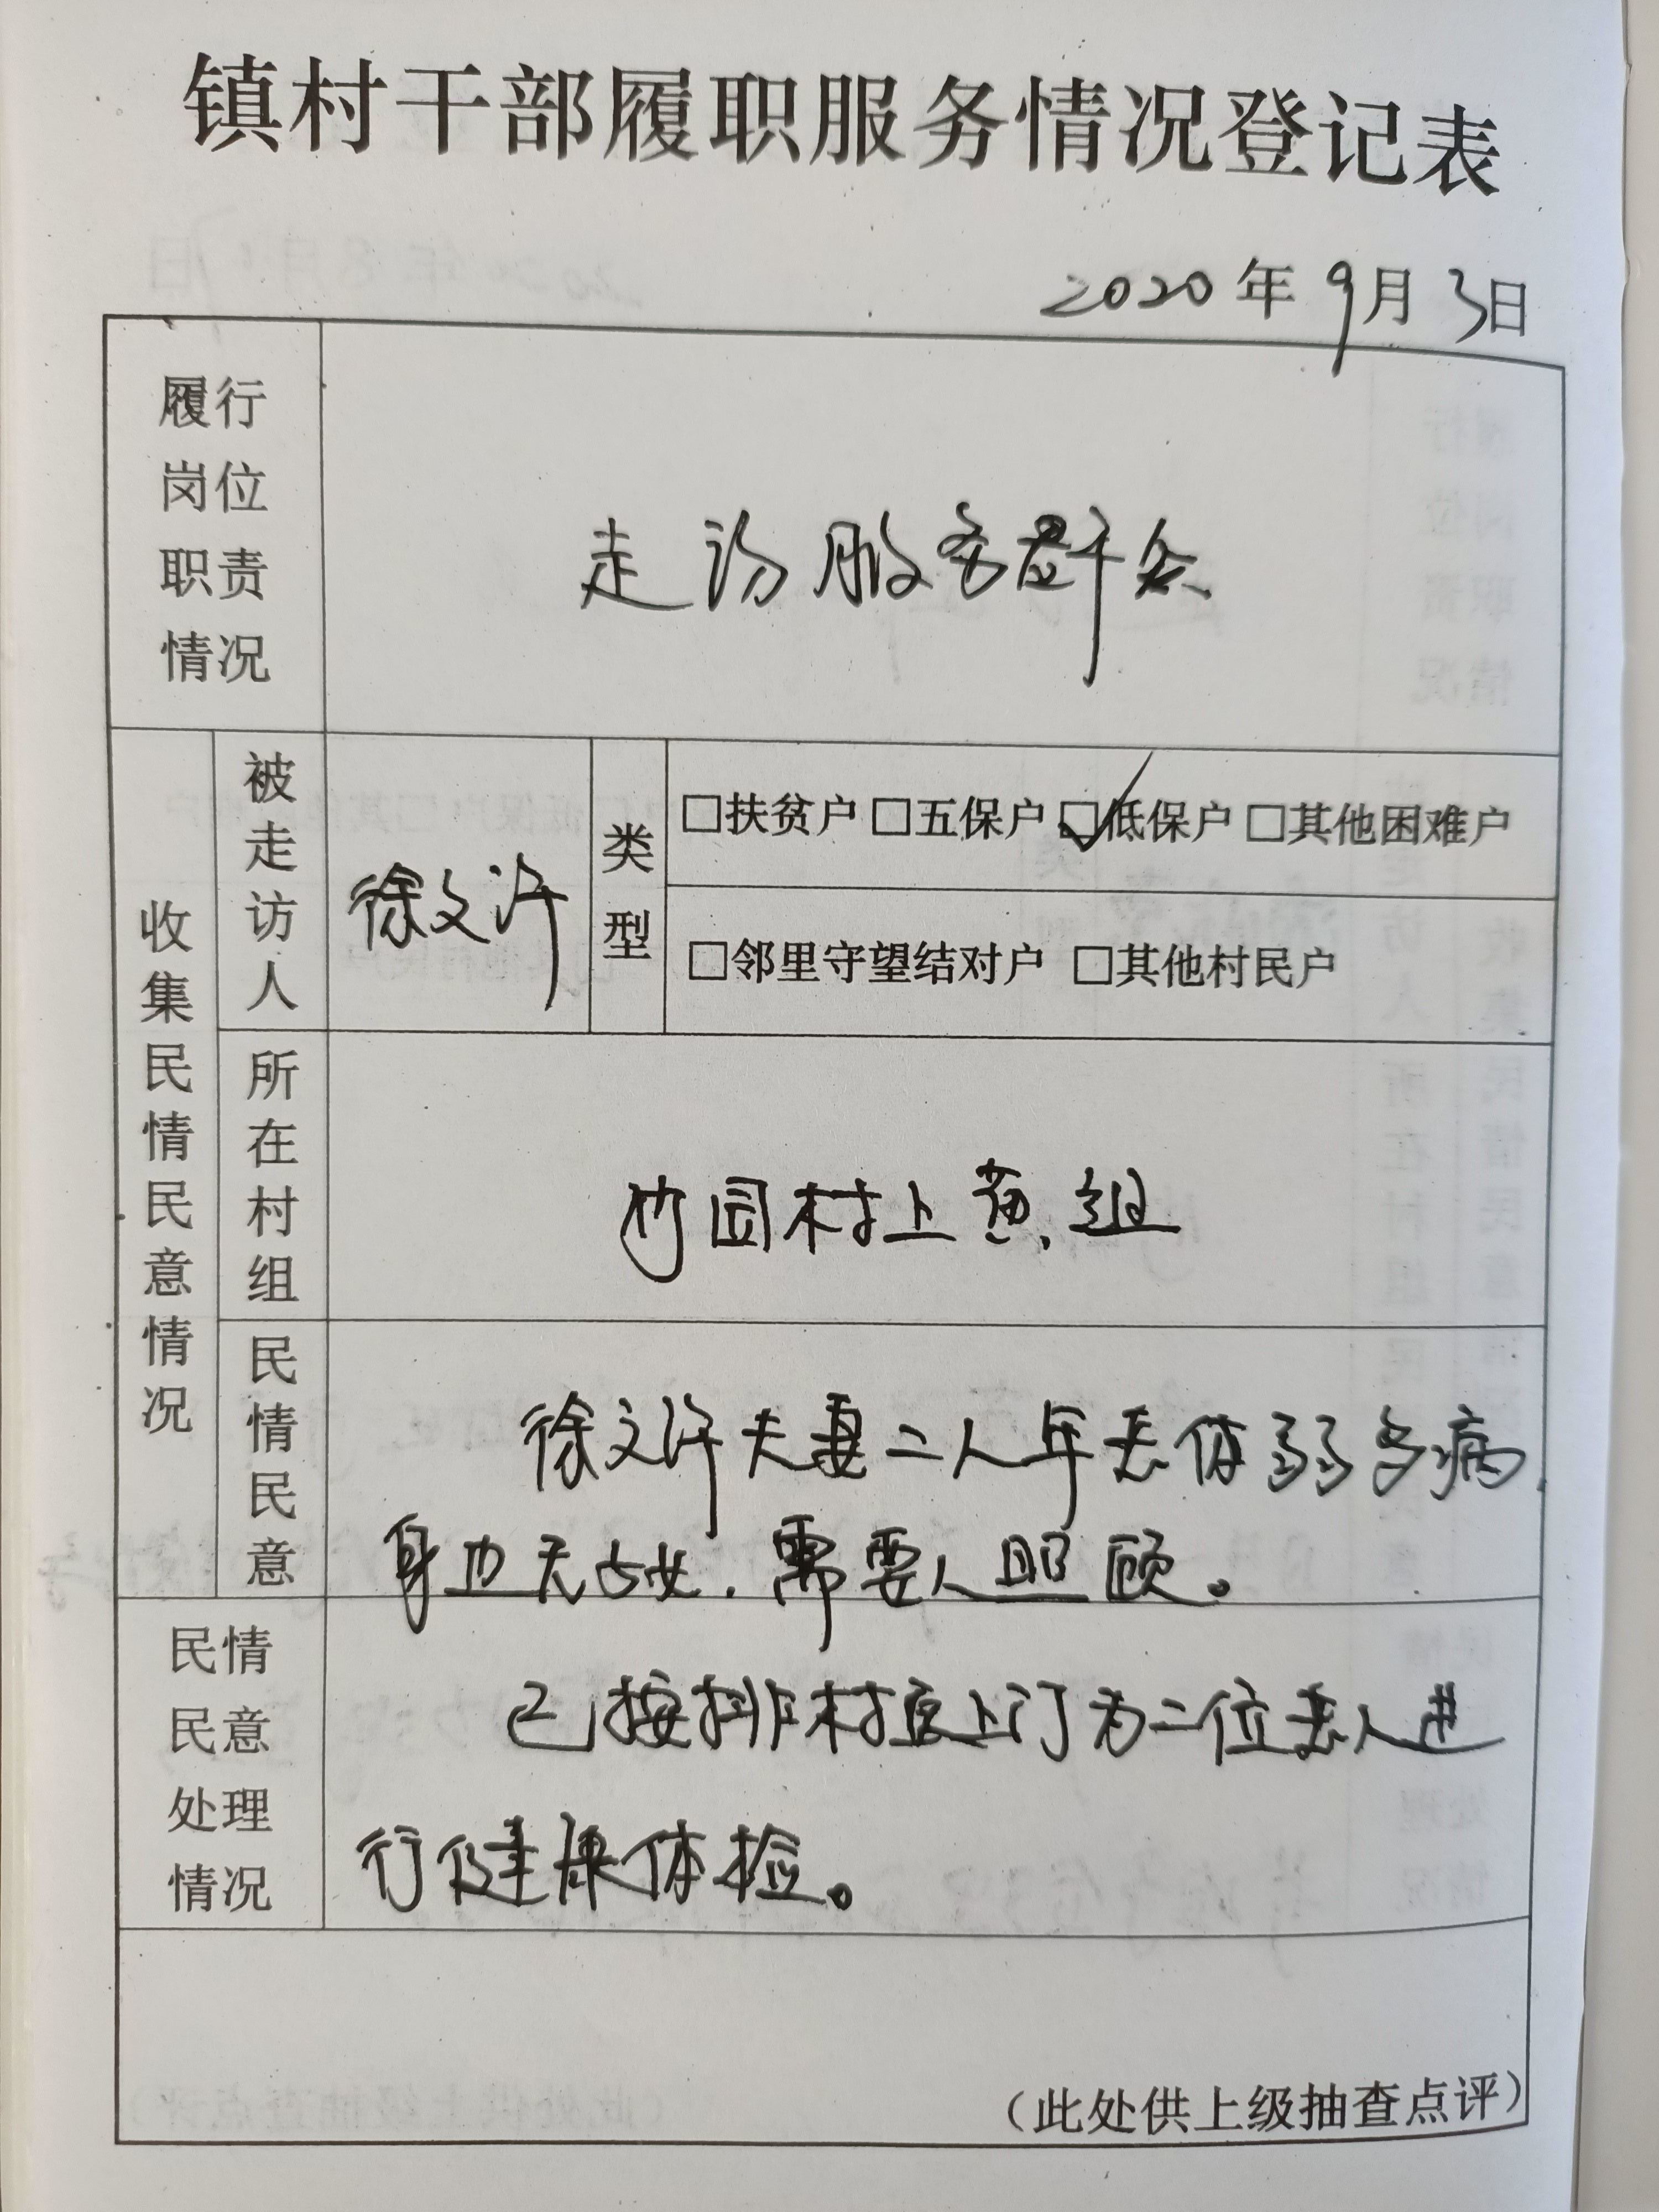 镇村干部履职服务情况登记表
2020年9月3日
履行岗位职责情况
走访服务群众
收集民情民意情况
被走访人
徐文许
类型
□扶贫户 □五保户 ☑低保户 □其他困难户
□邻里守望结对户 □其他村民户
所在村组
竹园村上黄组
民情民意
徐文许夫妻二人年老体弱多病,
身边无子女,需要人照顾。
民情民意处理情况
已按排村医上门为二位老人进
行健康体检。
(此处供上级抽查点评)